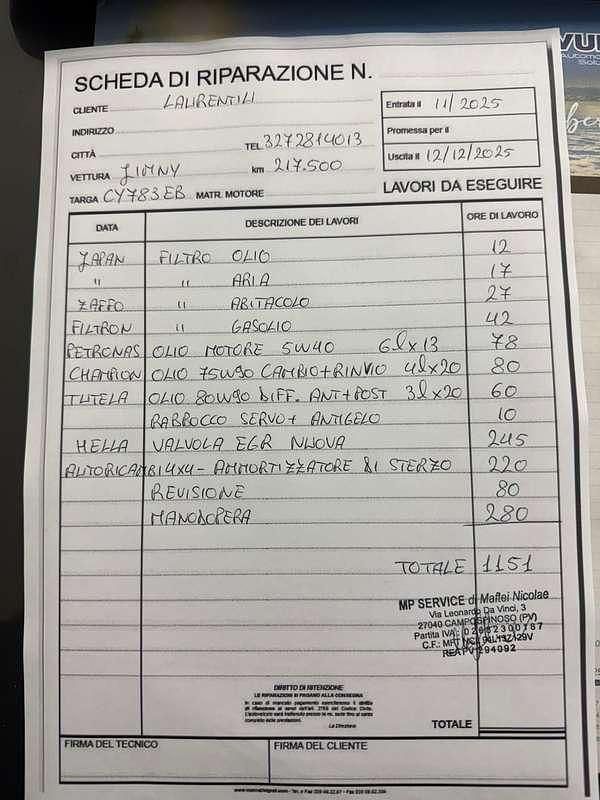 SCHEDA DI RIPARAZIONE N.
CLIENTE LAURENTIU
INDIRIZZO
CITTÀ TEL. 3272814013
VETTURA JIMNY km 217.500
TARGA CY783EB MATR. MOTORE
Entrata il 11/2025
Promessa per il
Uscita il 12/12/2025
LAVORI DA ESEGUIRE
DATA DESCRIZIONE DEI LAVORI ORE DI LAVORO
JAPAN FILTRO OLIO 12
" " ARIA 17
ZAFFO " ABITACOLO 27
FILTRON " GASOLIO 42
PETRONAS OLIO MOTORE 5W40 6lx13 78
CHAMPION OLIO 75W90 CAMBIO+RINVIO 4lx20 80
TUTELA OLIO 80W90 DIFF. ANT+POST 3lx20 60
RABBOCCO SERVO+ ANTIGELO 10
HELLA VALVOLA EGR NUOVA 245
AUTORICAMBI 4x4- AMMORTIZZATORE DI STERZO 220
REVISIONE 80
MANODOPERA 280
TOTALE 1151
MP SERVICE di Maftei Nicolae
Via Leonardo Da Vinci, 3
27040 CAMPOSPINOSO (PV)
Partita IVA:
C.F.:
REA PV 294092
DIRITTO DI RITENZIONE
LE RIPARAZIONI SI PAGANO ALLA CONSEGNA
In caso di mancato pagamento eserciteremo il diritto
di ritenzione ai sensi dell'art. 2756 del Codice Civile.
La Direzione
TOTALE
FIRMA DEL TECNICO FIRMA DEL CLIENTE